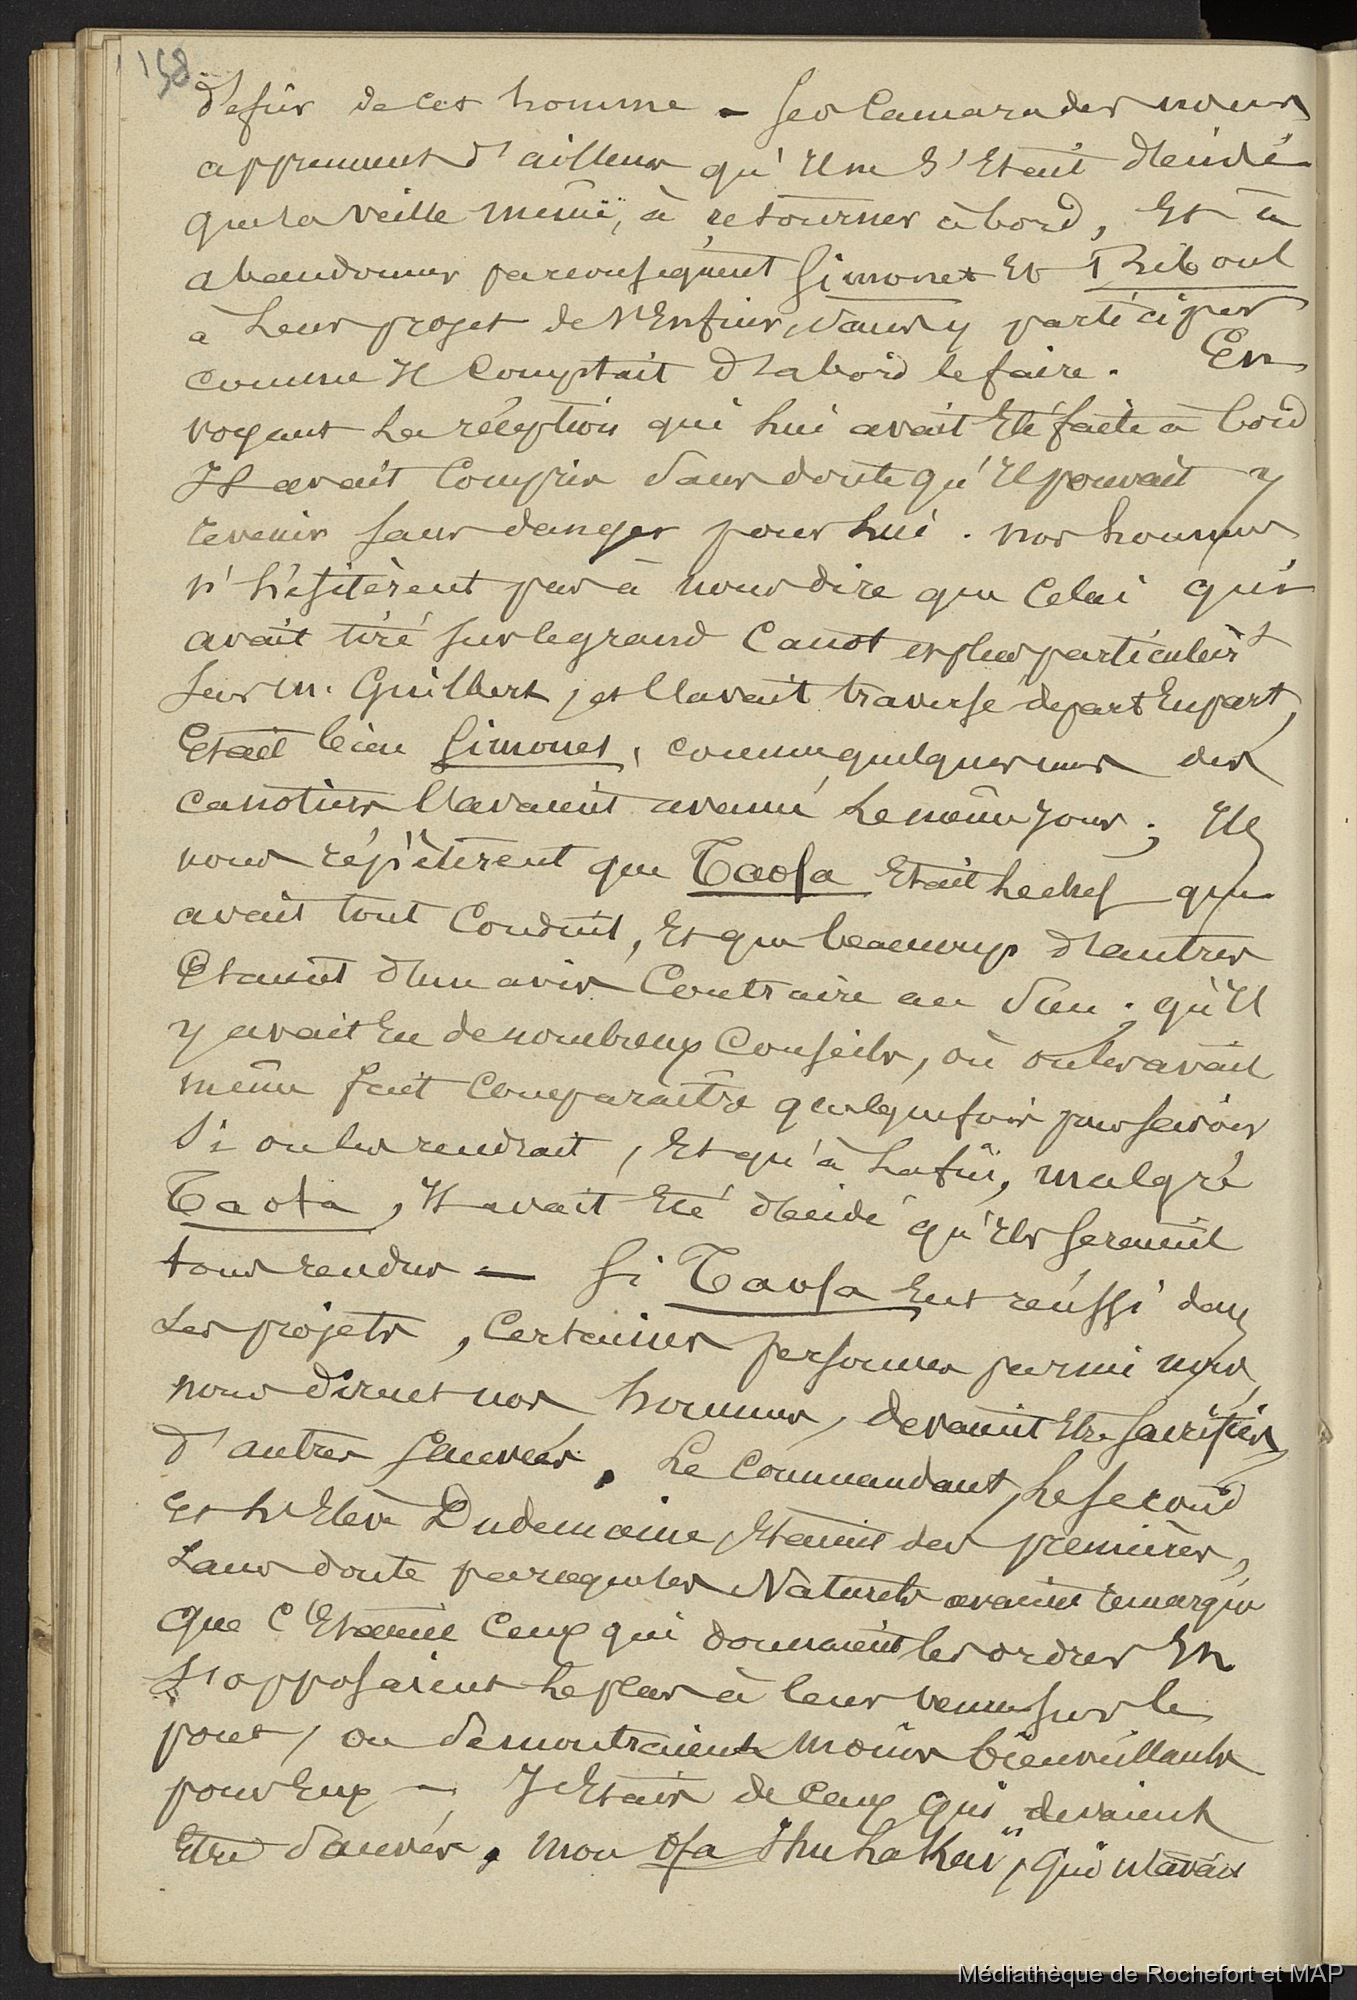 158
désir de cet homme - Ses Camarades nous
apprennent d'ailleurs qu'il ne s'était décidé
que la veille même, à retourner à bord, Et à
abandonner par conséquent Simonet Et Riboul
à Leur projet de s'Enfuir, sans y participer
comme Il Comptait d'abord le faire. En
voyant La réception qui Lui avait Eté faite à bord
Il avait Compris sans doute qu'Il pouvait y
revenir sans danger pour Lui. nos hommes
n'hésitèrent pas à nous dire que Celui qui
avait tiré sur le grand Canot et plus particulièrt
sur m. Guilbert, et l'avait traversé de part En part,
Etait bien Simonet, comme quelques uns des
canotiers l'avaient avancé Le même jour; Ils
nous répétèrent que Taofa Etait Le chef qui
avait tout Conduit, Et que beaucoup d'autres
Etaient d'un avis Contraire au sien; qu'Il
y avait Eu de nombreux Conseils, où on les avait
même fait Comparaître quelquefois pour savoir
si on les rendrait, Et qu'à La fin, malgré
Taofa, Il avait Eté décidé qu'Ils seraient
tous rendus — Si Taofa Eut réussi dans
Ses projets, Certaines personnes parmi nous,
nous dirent nos hommes, devaient Etre sacrifiées,
d'autres sauvées. Le Commandant, Le second
Et L'Elève Dudemaine, Etaient des premières,
Sans doute parceque les Naturels avaient remarqué
que C'Etaient Ceux qui donnaient les ordres En
S'opposaient Le plus à leur venue sur le
pont, ou se montraient moins bienveillants
pour Eux — J'Etais de Ceux qui devaient
Etre sauvés, mon Ofa qui m'avait
Médiathèque de Rochefort et MAP